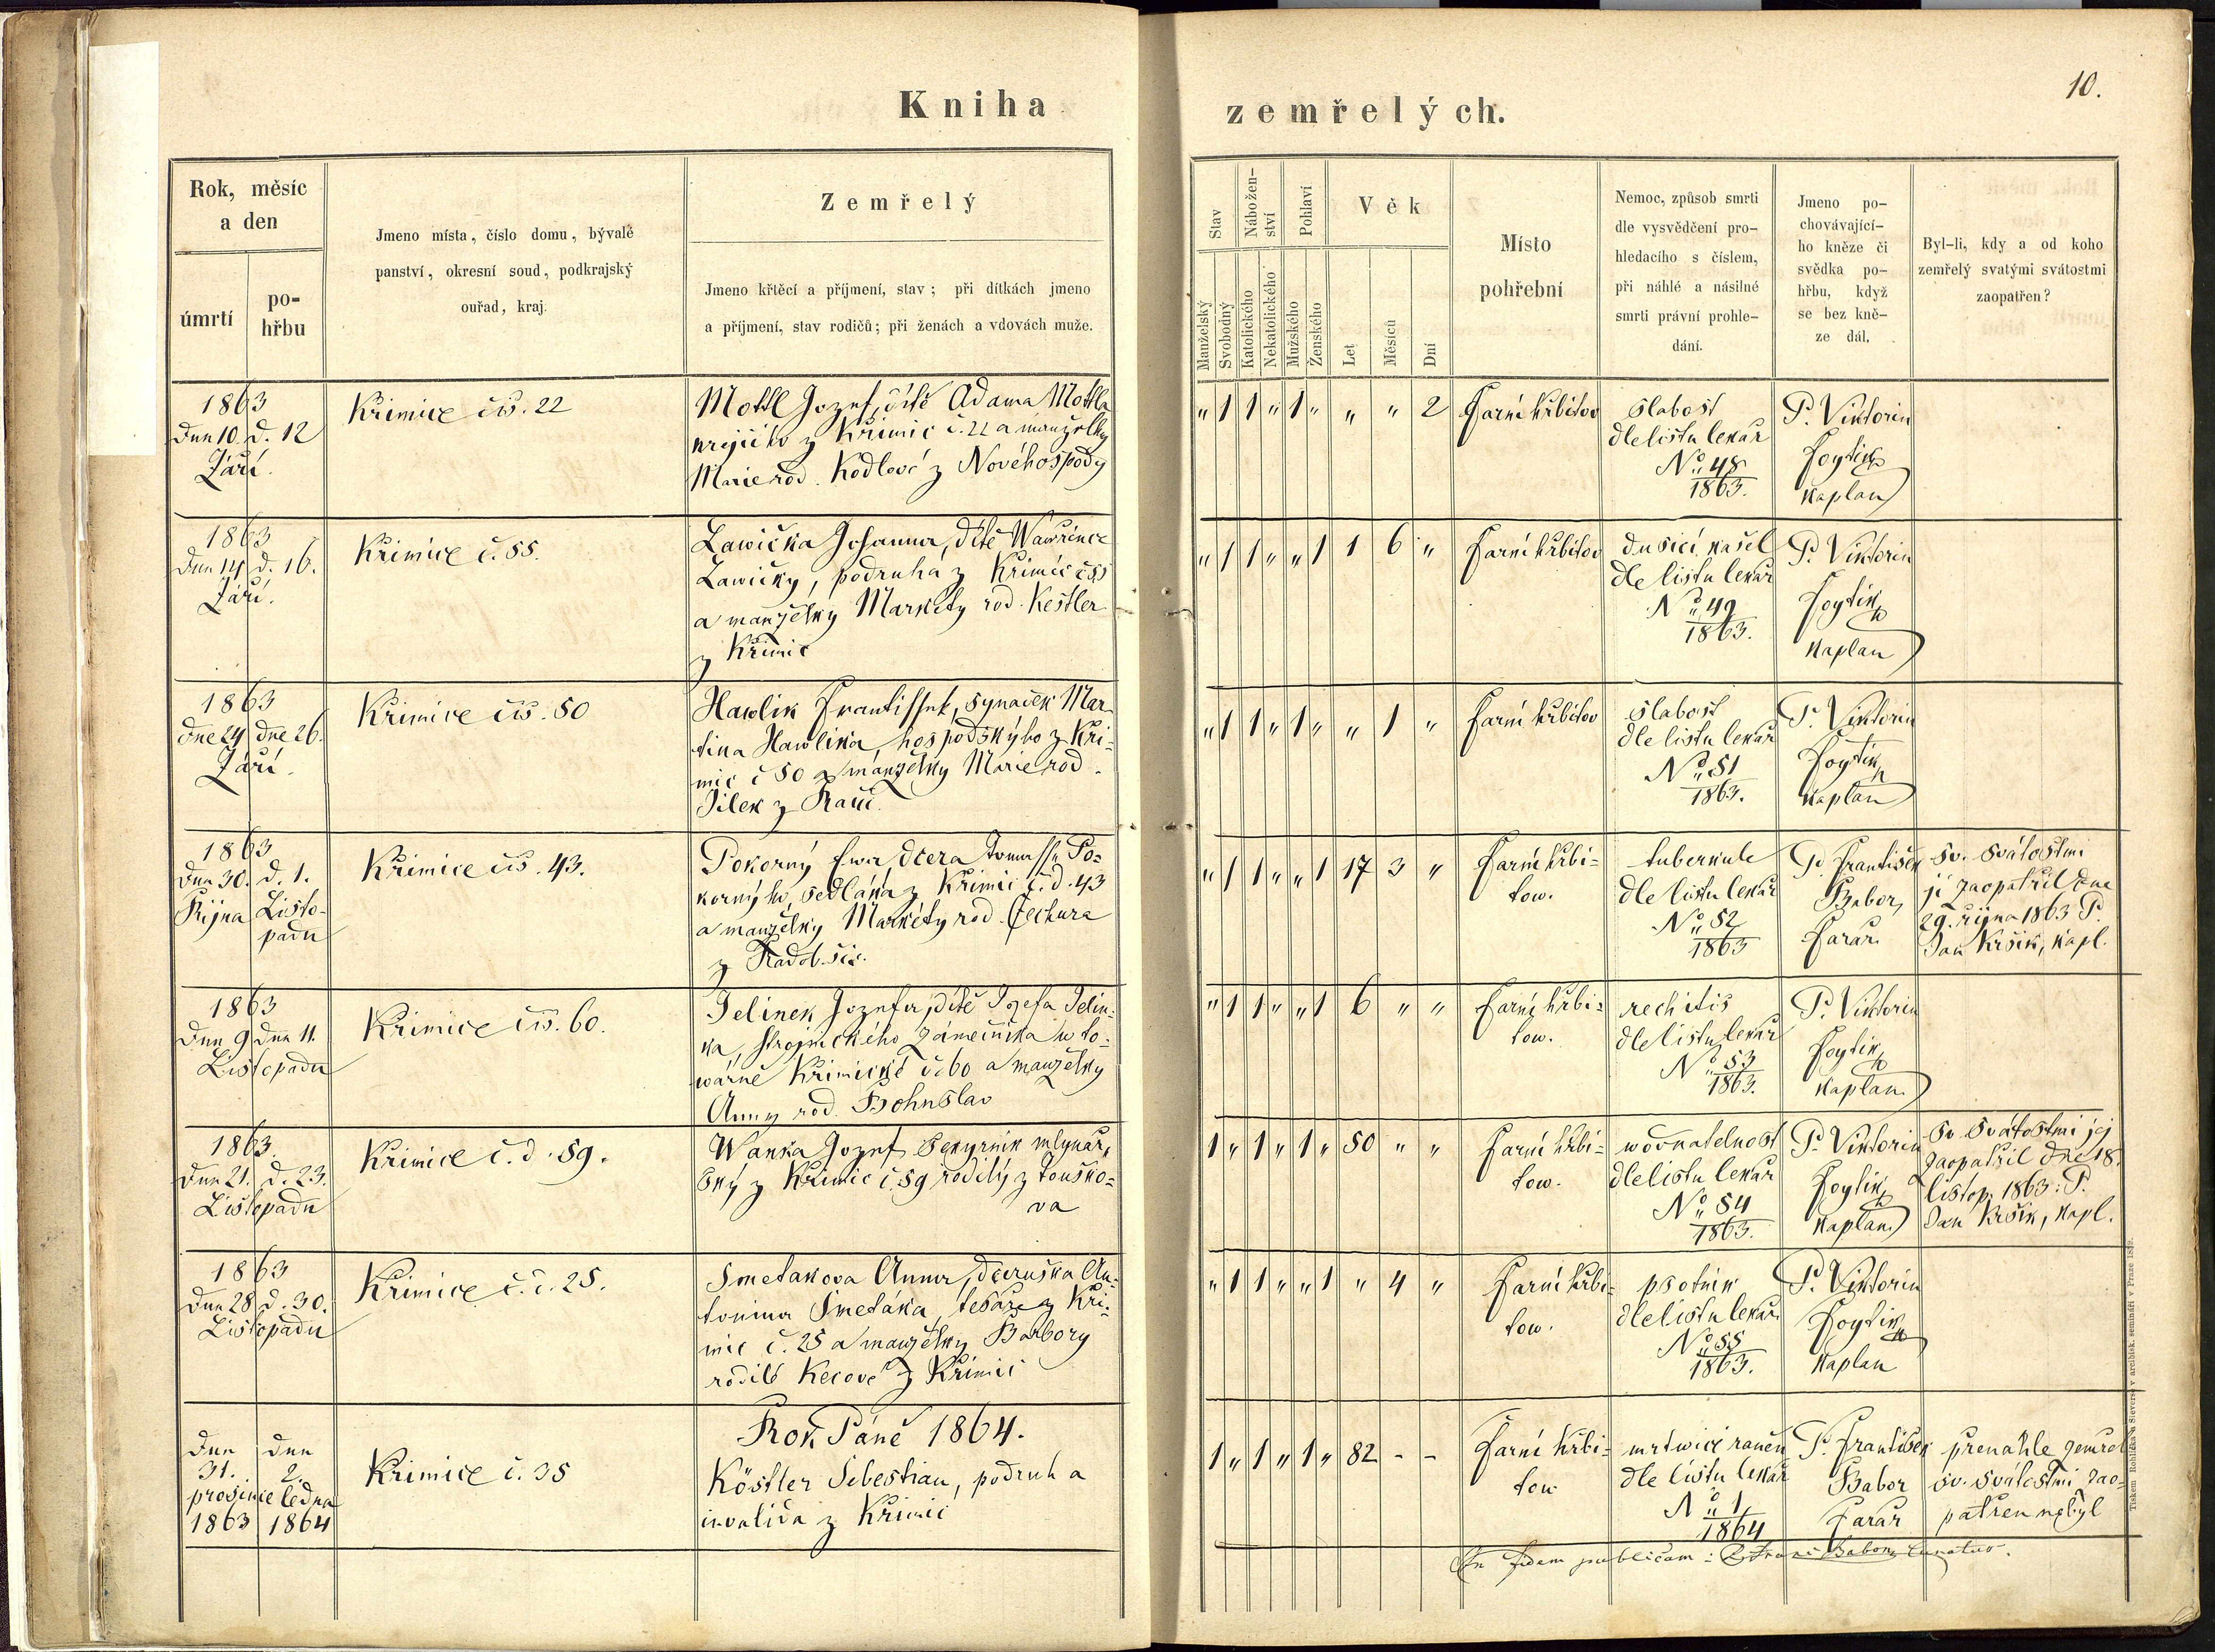 10.
Kniha zemřelých.
Rok, měsíc
a den
úmrtí
po-
hřbu
Jmeno místa, číslo domu, bývalé
panství, okresní soud, podkrajský
ouřad, kraj.
Zemřelý
Jmeno křtěcí a příjmení, stav; při dítkách jmeno
a příjmení, stav rodičů; při ženách a vdovách muže.
Stav
Manželský
Svobodný
Nábožen-
ství
Katolického
Nekatolického
Pohlaví
Mužského
Ženského
Věk
Let
Měsíců
Dní
Místo
pohřební
Nemoc, způsob smrti
dle vysvědčení pro-
hledacího s číslem,
při náhlé a násilné
smrti právní prohle-
dání.
Jmeno po-
chovávající-
ho kněze či
svědka po-
hřbu, když
se bez kně-
ze dál.
Byl-li, kdy a od koho
zemřelý svatými svátostmi
zaopatřen?
1863
Dne 10. d. 12
Září.
Křimice čis. 22
Mottl Jozef, dítě Adama Mottla
krejčího z Křimic č. 22 a manželky
Marie rod. Kodlové z Novéhospody
„ 1 1 „ 1 „ „ „ 2
Farní hřbitov
slabost
dle listu lekař
No 48
1863.
P. Viktorin
Foytik
kaplan
1863
Dne 14 d. 16.
Září.
Křimice č. 55.
Lawička Johanna, dítě Wawřince
Lawičky, podruha z Křimic č 55
a manželky Markéty rod. Kestler
z Křimic
„ 1 1 „ „ 1 1 6 „
Farní hřbitov
dusicí kašel
dle listu lekař
No 49
1863.
P. Viktorin
Foytik
kaplan
1863
Dne 24 dne 26.
Září.
Křimice čis. 50
Hawlik Frantissek, synaček Mar-
tina Hawlika, hospodského z Kři-
mic č 50 a manželky Marie rod.
Jilek z
„ 1 1 „ 1 „ „ 1 „
Farní hřbitov
slabost
dle listu lekař
No 51
1863.
P. Viktorin
Foytik
kaplan
1863
Dne 30. d. 1.
Října Listo-
padu
Křimice čis. 43.
Pokorný Ewa dcera Tomasse Po-
korného, sedláka z Křimic č. d. 43
a manželky Markéty rod. Čechura
z Radobčic.
„ 1 1 „ „ 1 17 3 „
Farní hřbi-
tow.
tuberkule
dle listu lekař
No 52
1863
P. František
Babor,
Farar.
Sv. svátostmi
ji zaopatřil dne
29. října 1863 P.
Jan Kršik, kapl.
1863
Dne 9 Dne 11.
Listopadu
Křimice čis. 60.
Jelinek Jozefa, dítě Jozefa Jelin-
ka, strojnického zámečníka w to-
wárně Křimické č. 60 a manželky
Anny rod. Bohuslav
„ 1 1 „ „ 1 6 „ „
Farní hřbi-
tow.
rechitis
dle listu lekař
No 53
1863.
P. Viktorin
Foytik
kaplan.
1863.
Dne 21. d. 23.
Listopadu
Křimice č. d. 59.
Wanka Jozef Sekyrnik mlynář-
ský z Křimic č. 59 rodilý z Touško-
va
1 „ 1 „ 1 „ 50 „ „
Farní hřbi-
tow.
wodnatelnost
dle listu lekař
No 54
1863.
P. Viktorin
Foytik
kaplan
Sv. svátostmi jej
zaopatřil dne 18.
listop. 1863: P.
Jan Kršik, kapl.
1863
Dne 28 d. 30.
Listopadu
Křimice č. d. 25.
Smetakova Anna, dceruška An-
tonina Smetáka, tesaře z Kři-
mic č. 25 a manželky Barbory
rodilé Kecové z Křimic
„ 1 1 „ „ 1 „ 4 „
Farní hřbi-
tow.
psotnik
dle listu lekař
No 55
1863.
P. Viktorin
Foytik
kaplan
Rok Páně 1864.
Dne Dne
31. 2.
prosince ledna
1863 1864
Křimice č. 35
Köstler Sebestian, podruh a
invalida z Křimic
1 „ 1 „ 1 „ 82 - -
Farní hřbi-
tow
mrtwicí raněn
dle listu lekař
No 1
1864
P. František
Babor
Farář
přenáhle zemřel
sv. svátostmi zao-
patřen nebyl
In fidem publicam: Babor, curatus.